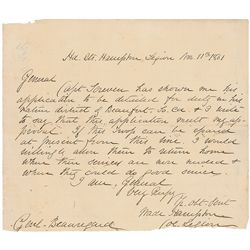 Hd. Qts. Hampton Legion Nov. 11th 1861
General
Capt. Screven has shown me his
application to be detailed for duty in his
native district of Beaufort, So. Ca. & I write
to say that this application meets my ap-
proval. If this Troop can be spared
at present from this line I would
willingly allow them to return home
where their services are more needed &
where they could do good service.
I am, General
Very Respy
Yr. obt. Svt.
Wade Hampton
Col. Legion
Genl. Beauregard